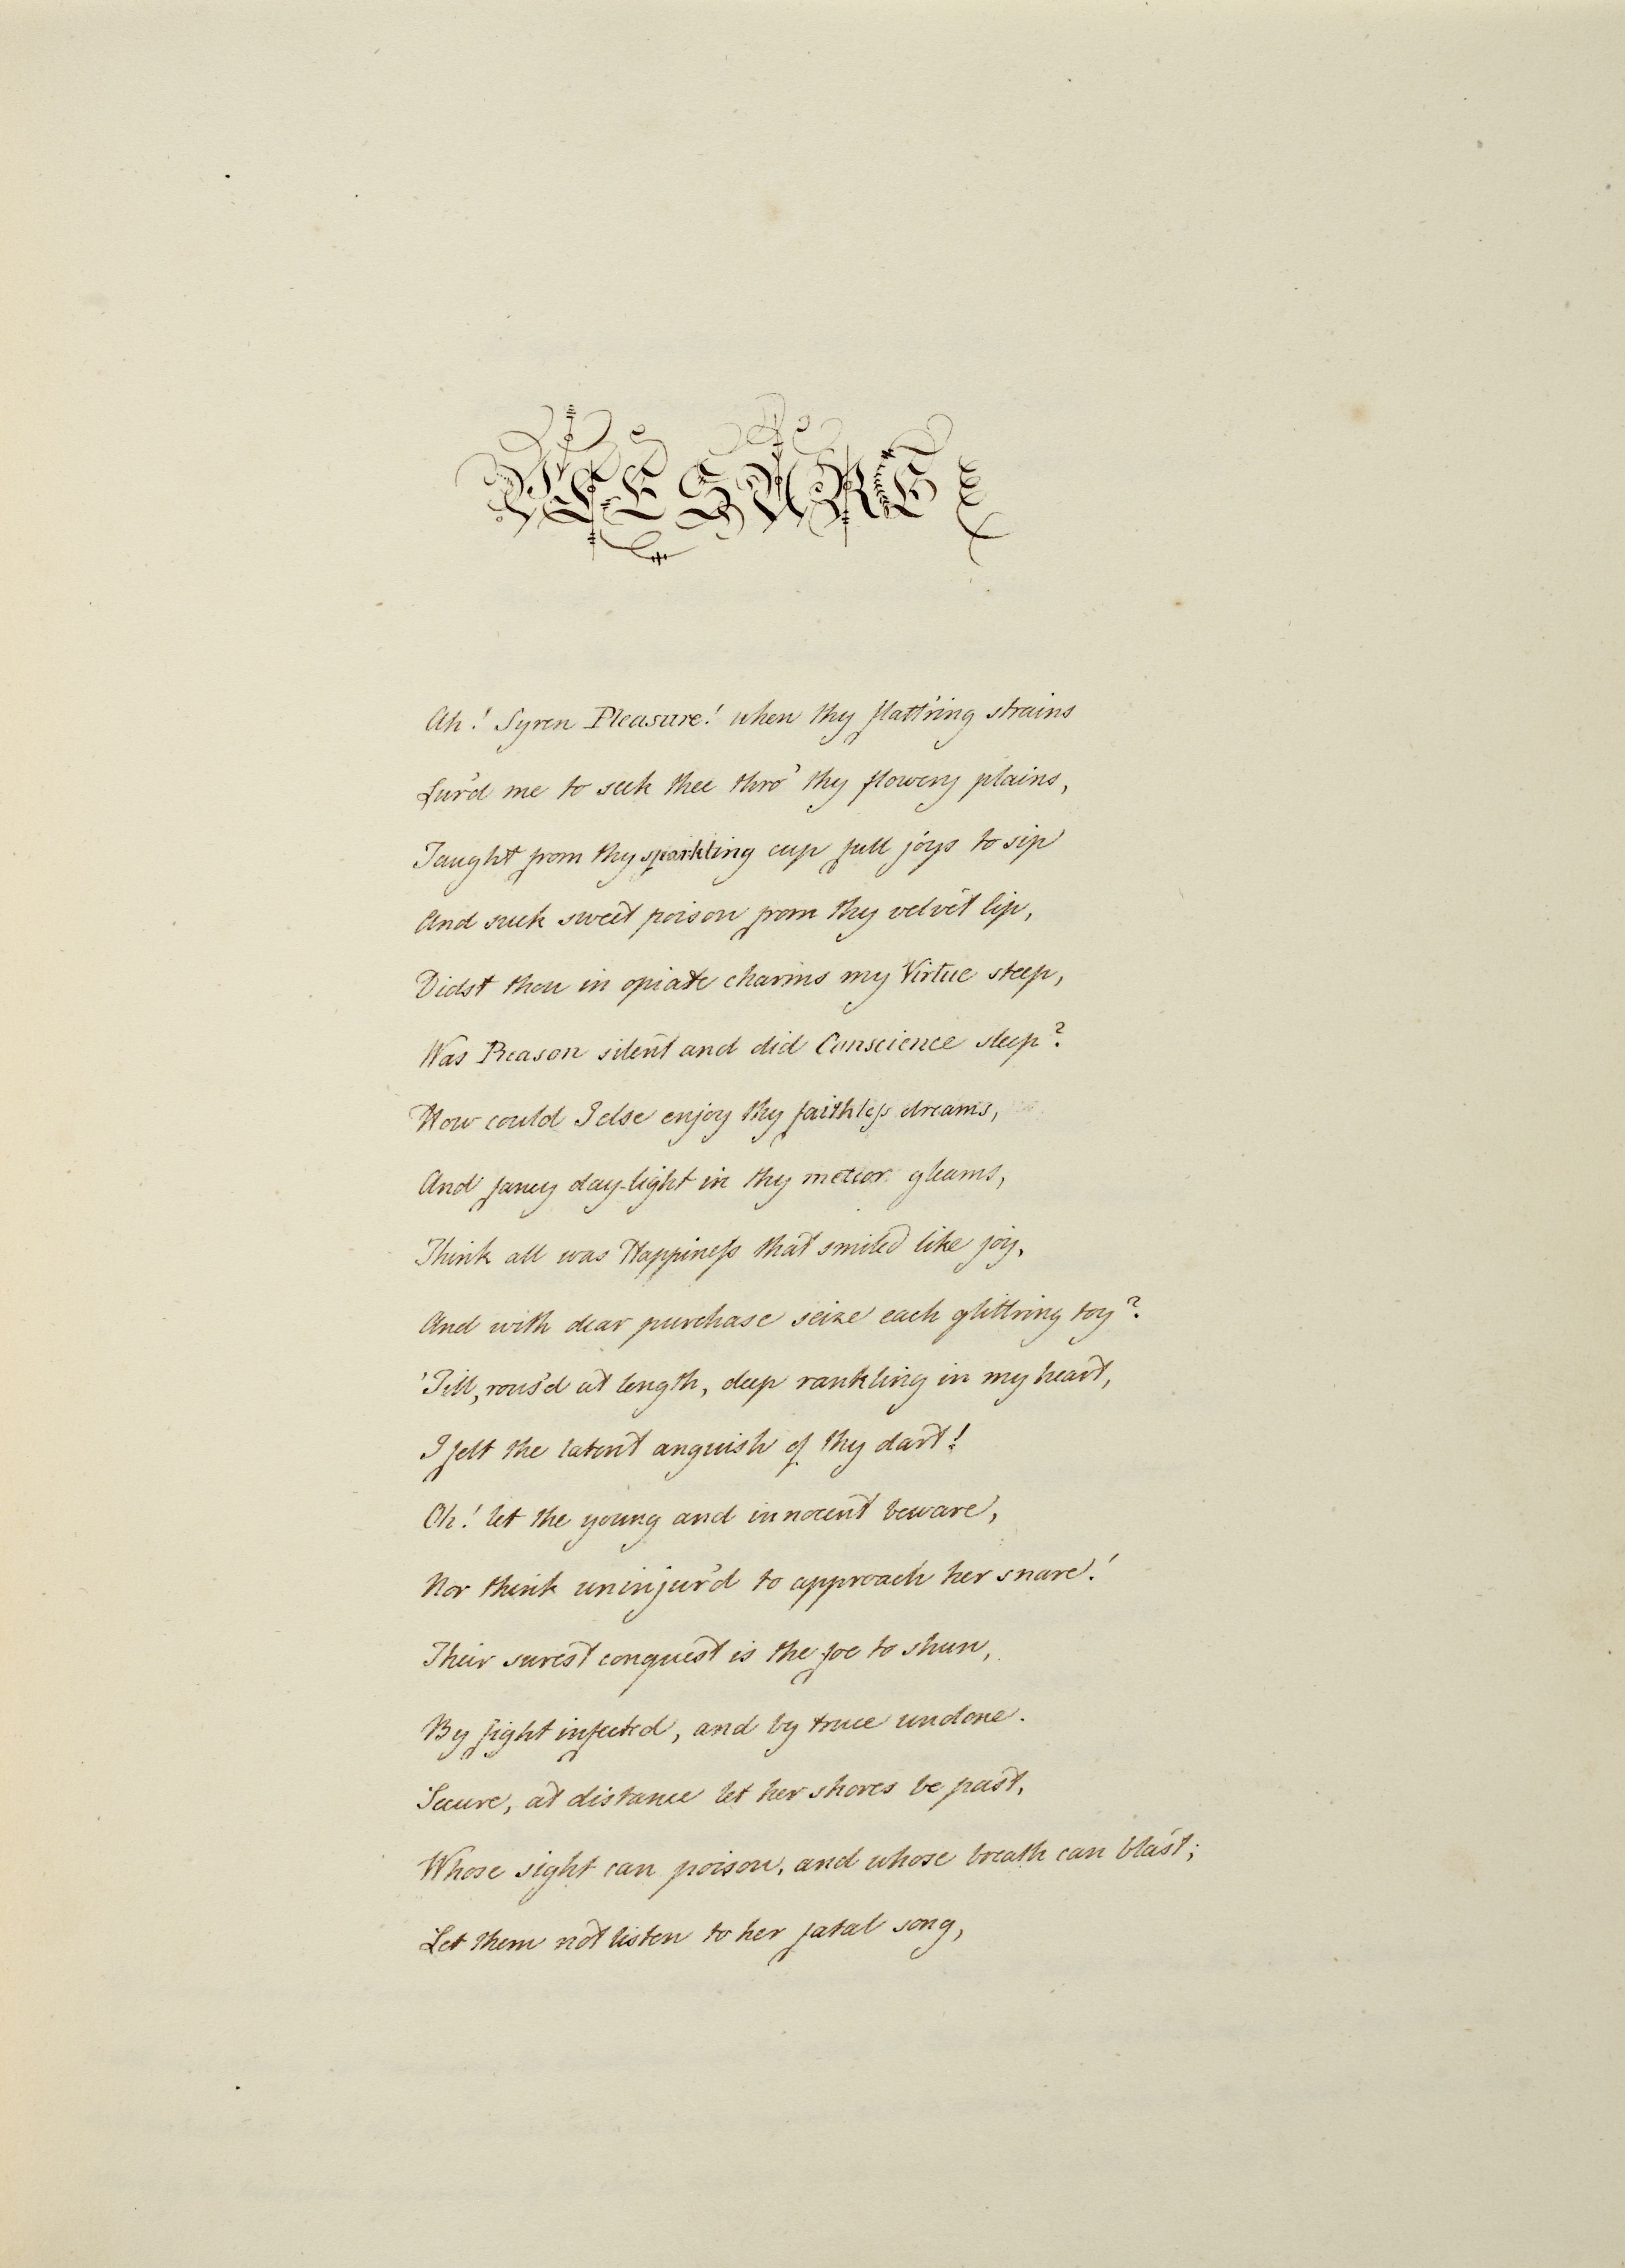 PLEASURE
Ah! Syren Pleasure! when thy flatt'ring strains
Lur'd me to seek thee thro' thy flowery plains,
Taught from thy sparkling cup full joys to sip
And suck sweet poison from thy velvet lip,
Didst thou in opiate charms my Virtue steep,
Was Reason silent and did Conscience sleep?
How could I else enjoy thy faithless dreams,
And fancy day-light in thy meteor gleams,
Think all was Happiness that smiled like joy,
And with dear purchase seize each glitt'ring toy?
'Till, rous'd at length, deep rankling in my heart,
I felt the latent anguish of thy dart!
Oh! let the young and innocent beware,
Nor think uninjur'd to approach her snare!
Their surest conquest is the foe to shun,
By fight infected, and by truce undone.
Secure, at distance let her shores be past,
Whose sight can poison, and whose breath can blast;
Let them not listen to her fatal song,